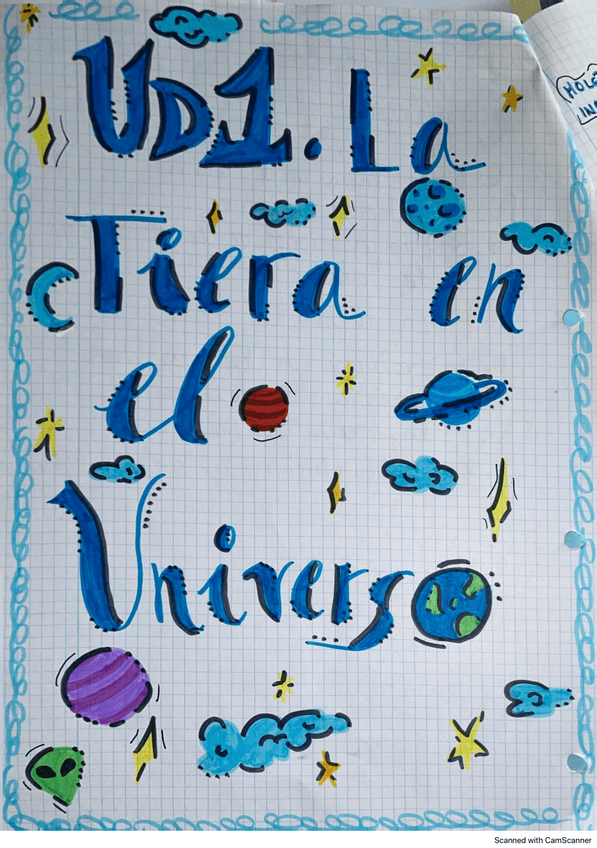 UD1. La
Tiera en
el
Universo
HOLE
Scanned with CamScanner